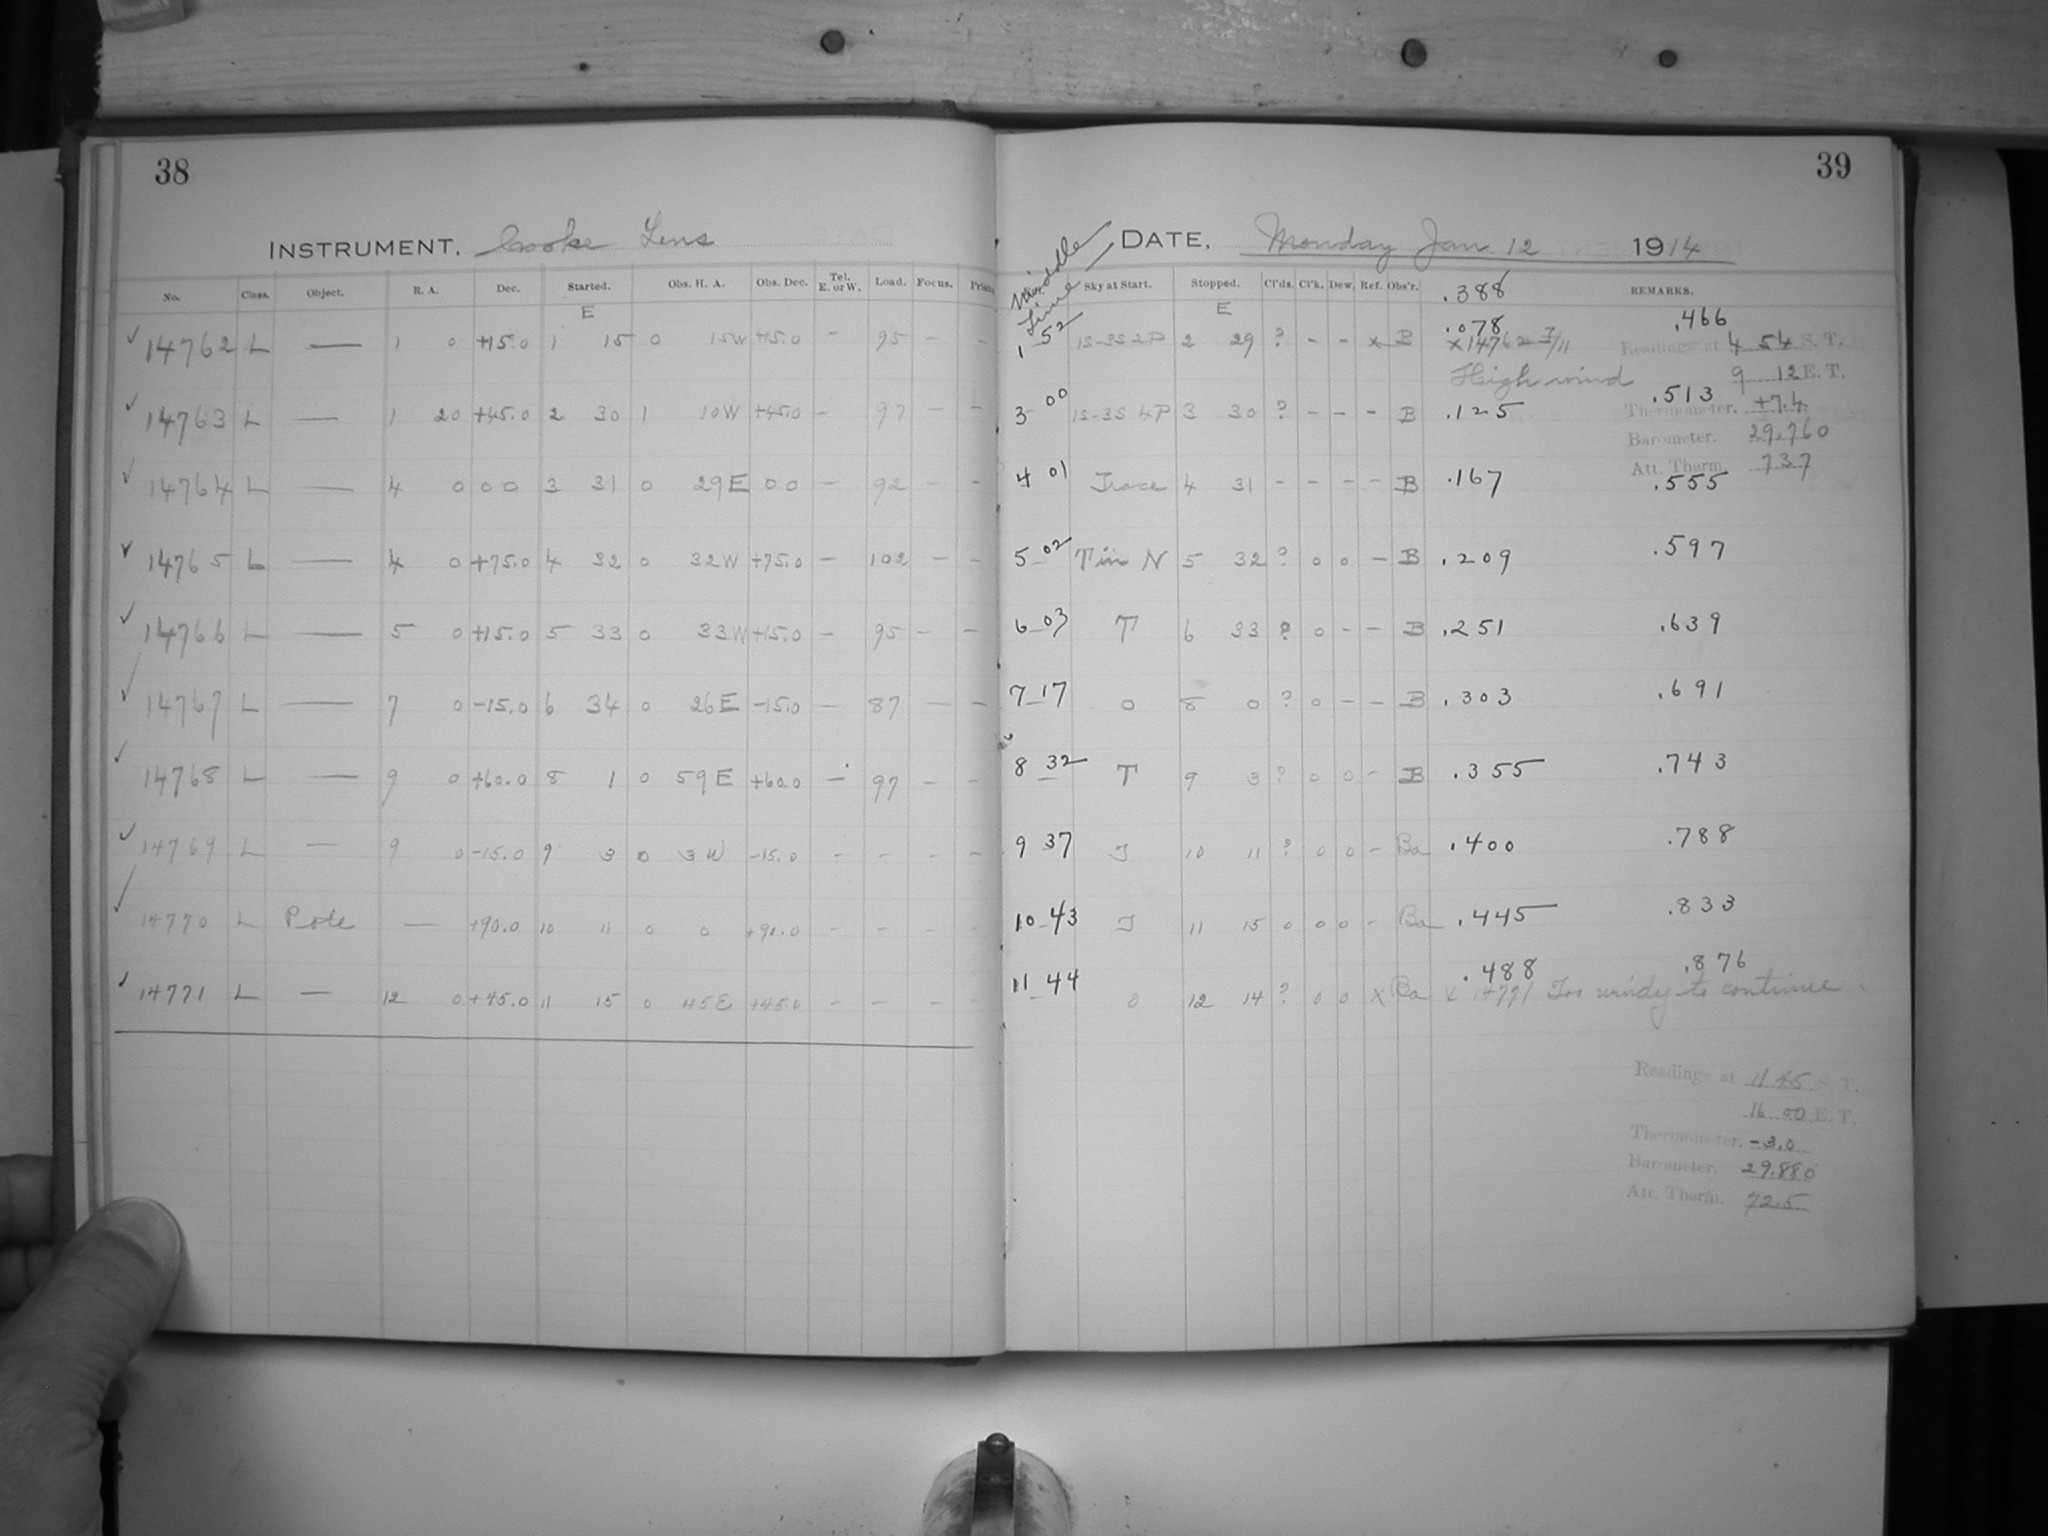 38
INSTRUMENT. Cooke Lens
No. Class. Object. R. A. Dec. Started. Obs. H. A. Obs. Dec. Tel. E. or W. Load. Focus.
E
✓ 14762 L — 1 0 +15.0 1 15 0 15W +15.0 - 95 - -
✓ 14763 L — 1 20 +45.0 2 30 1 10W +45.0 - 97 - -
✓ 14764 L — 4 0 00 3 31 0 29E 00 - 92 - -
✓ 14765 L — 4 0 +75.0 4 32 0 32W +75.0 - 102 - -
✓ 14766 L — 5 0 +15.0 5 33 0 33W +15.0 - 95 - -
✓ 14767 L — 7 0 -15.0 6 34 0 26E -15.0 - 87 - -
✓ 14768 L — 9 0 +60.0 8 1 0 59E +60.0 - 97 - -
✓ 14769 L — 9 0 -15.0 9 3 0 3W -15.0 - - - -
✓ 14770 L Pole — +90.0 10 11 0 0 +90.0 - - - -
✓ 14771 L — 12 0 +45.0 11 15 0 45E +45.0 - - - -
39
DATE. Monday Jan 12 1914
Middle Time Sky at Start. Stopped. Cl'ds. Cl'k. Dew. Ref. Obs'r. .388 REMARKS.
E
1 52 1S-3S2P 2 29 ? - - x B .078 .466
x14762
High wind
Readings at 4 54 S. T.
9 12 E. T.
3 00 1S-3S 4P 3 30 ? - - - B .125 .513
Thermometer. +7.4
Barometer. 29.760
Att. Therm. 73.7
4 01 Trace 4 31 - - - - B .167 .555
5 02 T in N 5 32 ? 0 0 - B .209 .597
6 03 T 6 33 ? 0 - - B .251 .639
7 17 0 8 0 ? 0 - - B .303 .691
8 32 T 9 3 ? 0 0 - B .355 .743
9 37 T 10 11 ? 0 0 - Ba .400 .788
10 43 T 11 15 0 0 0 - Ba .445 .833
11 44 0 12 14 ? 0 0 x Ba .488 .876
x 14771 Too windy to continue.
Readings at 11 45 S. T.
16 00 E. T.
Thermometer. -3.0
Barometer. 29.880
Att. Therm. 72.5